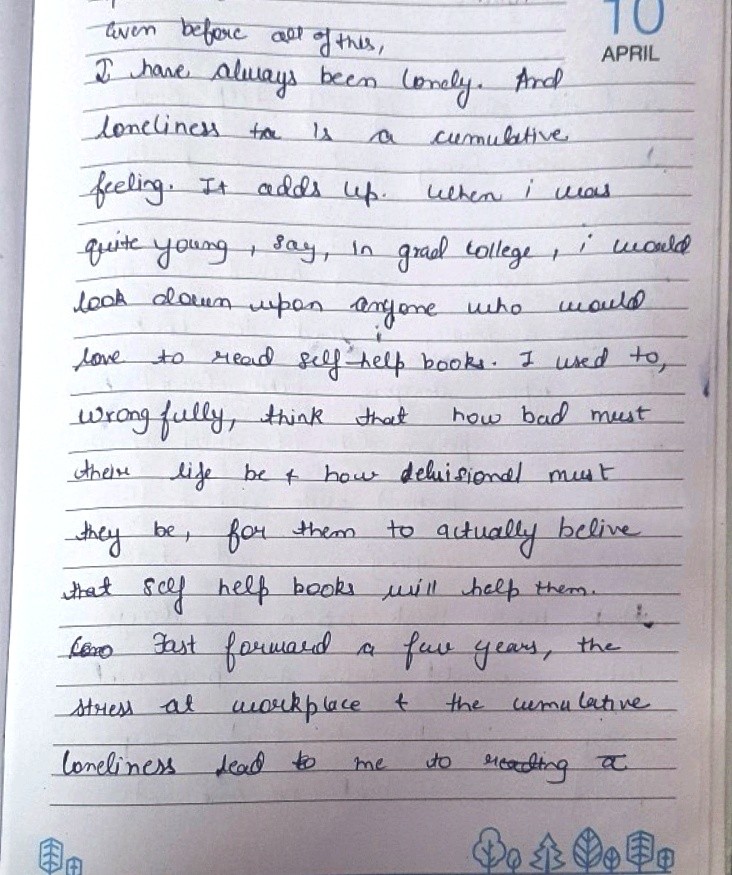 10
APRIL
even before all of this,
I have always been lonely. And
loneliness ta is a cumulative
feeling. It adds up. When i was
quite young, say, in grad college, i would
look down upon anyone who would
love to read self help books. I used to,
wrongfully, think that how bad must
their life be & how delusional must
they be, for them to actually belive
that self help books will help them.
Fast forward a few years, the
stress at workplace & the cumulative
loneliness lead to me to reading a